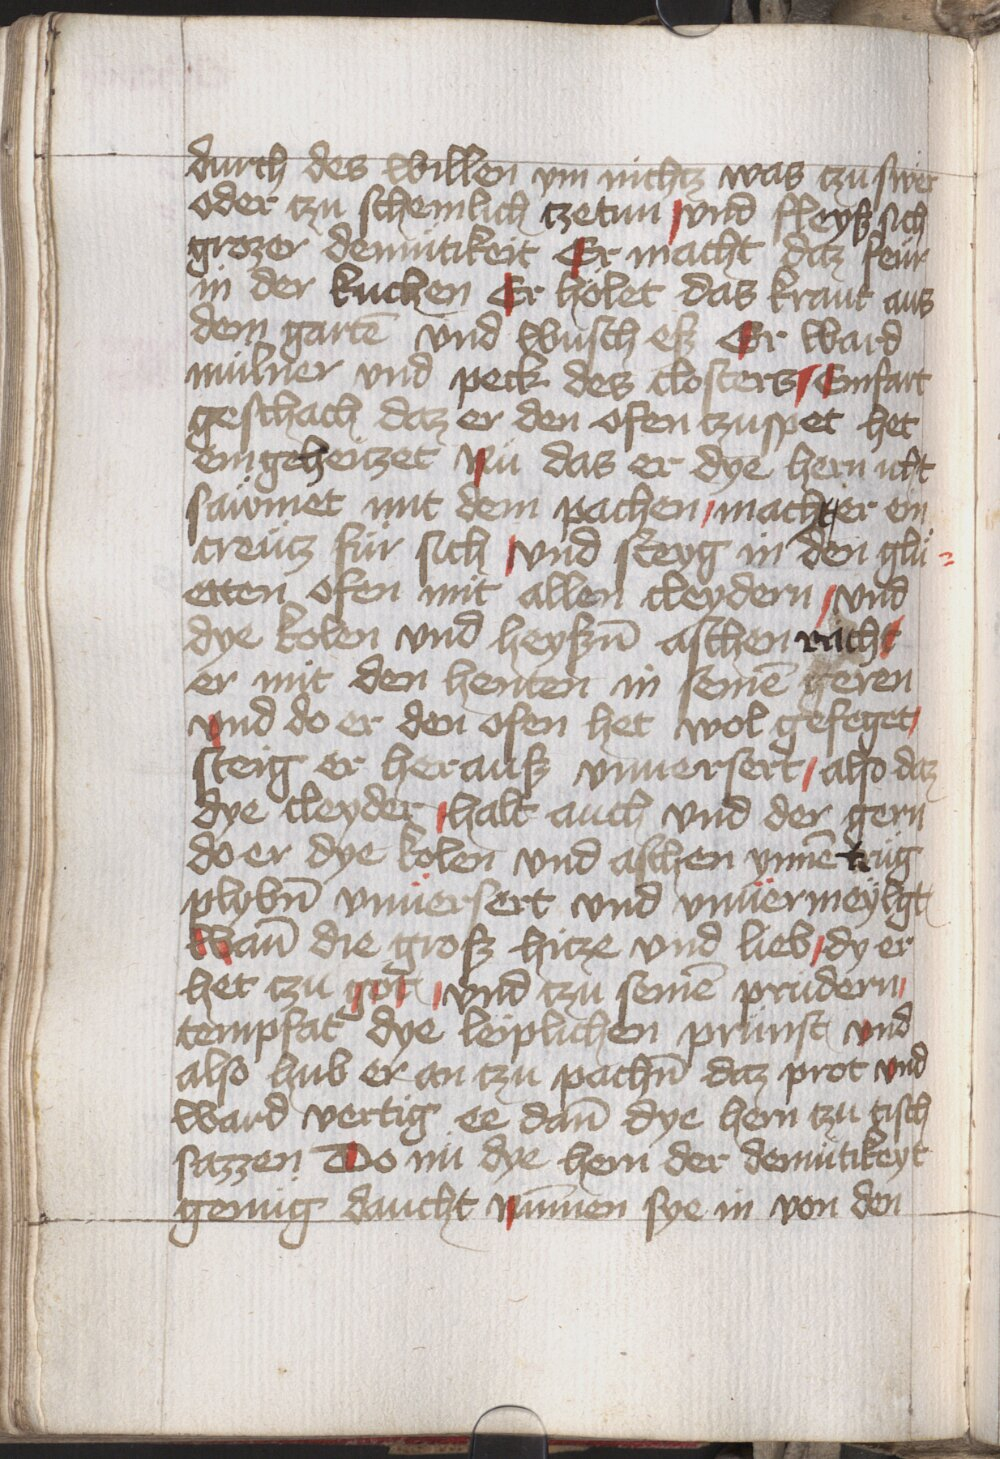 durch des willen ym nichtz was tzu swer
oder tzu schemlich tzetun / vnd fleyß sich
grozer demütikeit Er macht daz feür
in der kuchen Er hölet das kraut aus
dem gartē vnd wusch eß Er ward
mülner vnd peck des closters / Einfart
geschach daz er den ofen tzuspet het
eingeheitzet Nu das er dye hern icht
sawmet mit dem pachen / macht er ein
creütz für sich / vnd steyg in den glü =
etten ofen mit allen cleydern / vnd
dye kolen vnd heyßn̄ aschen rucht
er mit den henten in seinē geren
vnd do er den ofen het wol gefeget /
steig er her auß vnuersert / also daz
dye cleyder / halt auch vnd der gern
do er dye kolen vnd aschen ynnē trug
plybn̄ vnuersert vnd vnuermeyligt
Wan̄ die groß hitze vnd lieb / dy er
het tzu got / vnd tzu seinē prüdern /
tempfat dye leiplichen prünst vnd
also hub er an tzu pachn̄ daz prot vnd
ward vertig ee dan̄ dye hern tzu tisch
sazzen Do nu dye hern der demütikeyt
genüg daucht namen sye in von den